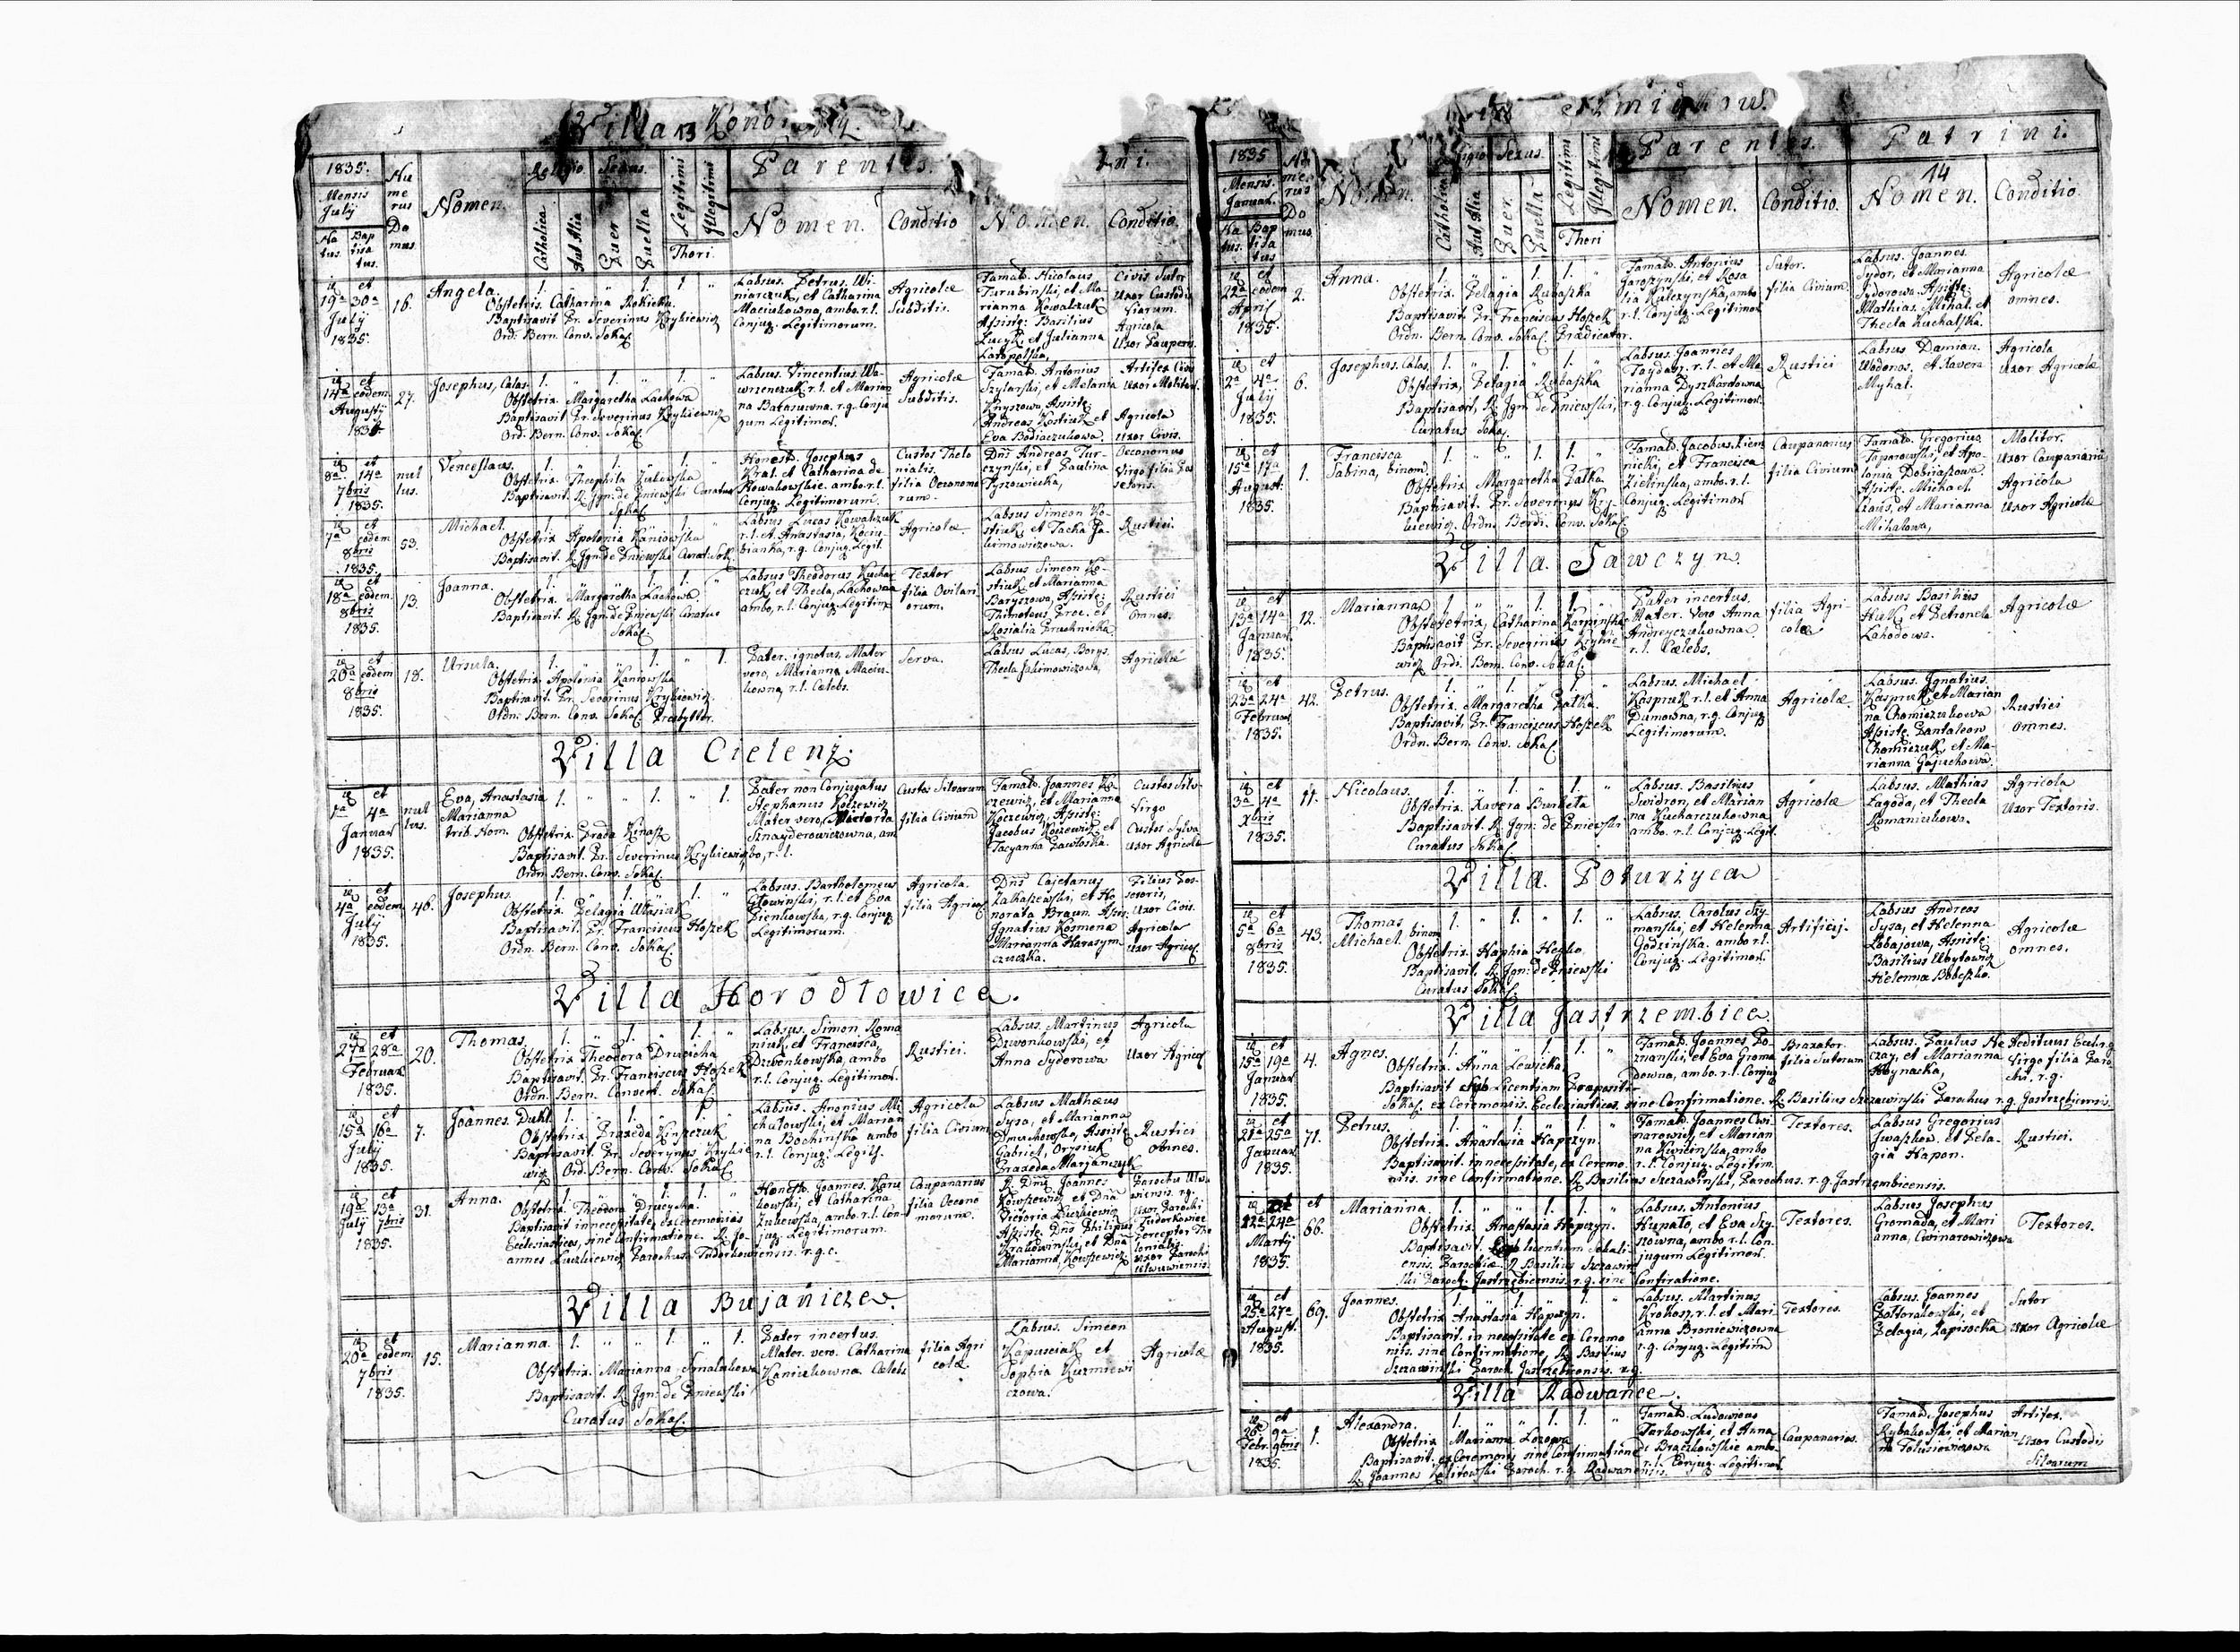 Villa
13
1835.
Mensis
July
Na
tus.
Bap
tisa
tus.
Nu
me
rus
Do
mus.
Nomen.
Religio.
Catholica
Aut Alia
Sexus.
Puer
Puella
Legitimi
Illegitimi
Thori.
Parentes.
Nomen.
Conditio
Nomen.
Conditio.
19a 30a
July
1835.
16.
Angela.
Obstetrix. Catharina
Baptisavit Pr. Severinus Krykiewicz
Ord: Bern. Conv. Sokal.
Labsus. Petrus. Wi-
niarczuk, et Catharina
Maciukowna, ambo. r.l.
Conjug. Legitimorum.
Agricolæ
Subditis.
Famat. Nicolaus
Turubinski, et Ma
rianna Kowalczuk
Assiste: Basilius
Lucyk, et Julianna
Civis Sutor
Uxor Custodis
Agricola
14a eodem
Augusty
1835.
27.
Josephus, Calas.
Obstetrix. Margaretha Lachowa
Baptisavit Pr. Severinus Krykiewicz
Ord. Bern. Conv. Sokal.
Labsus. Vincentius. Wa-
wrzenczuk, r.l. et Marian
na Barasuwna. r.g. Conju
gum Legitimor.
Agricolæ
Subditis.
Famat. Antonius
Szylarski, et Melania
Knyszowa, Assiste:
Andreas Kostiuk et
Eva Bodiaczukowa.
Artifex Civis
Uxor Molitor.
Agricola
Uxor Civis.
8a 14a
7bris
1835.
nul
lus.
Venceslaus.
Obstetrix. Theophila Zulawska
Baptisavit. R. Ign: de Pniewski Curatus
Sokal.
Honest. Josephus
Kral. et Catharina de
Nowakowskie. ambo. r.l.
Conjug. Legitimorum.
Custos Thelo
nialis.
filia Oeconomo
rum.
Dns Andreas Tur-
czynski, et Paulina
Pyszowiecka,
Oeconomus
Virgo filia
7a eodem
8bris
1835.
53.
Michael.
Obstetrix. Apolonia Kaniowska
Baptisavit. R. Ign: de Pniewski Curat. Sok.
Labsus Lucas Kowalczuk
r.l. et Anastasia, Kociu-
bianka, r.g. Conjug. Legit.
Agricolæ.
Labsus Simeon Ko-
stiuk, et Tacka Ja-
kimowiczowa.
Rustici.
18a eodem
8bris
1835.
13.
Joanna.
Obstetrix. Margaretha Lachowa.
Baptisavit. R. Ign: de Pniewski Curatus
Sokal.
Labsus Theodorus Kuchar
czuk, et Thecla, Lachowna
ambo, r.l. Conjug. Legitim
Textor
filia Ovilari
orum.
Labsus Simeon Ko-
stiuk, et Marianna
Baryszowa, Assiste:
Thimoteus Proc. et
Rosialia Pruchnicka.
Rustici
Omnes.
20a eodem
8bris
1835.
18.
Ursula.
Obstetrix. Apolonia Kaniowska
Baptisavit. Pr. Severinus Krykiewicz.
Ordn: Bern. Conv. Sokal. Presbytter.
Pater. ignotus, Mater
vero, Marianna Maciu-
kowna, r.l. Cælebs.
Serva.
Labsus Lucas, Borys.
Thecla Jakimowiczowa,
Agricolæ
Villa Cielenz.
1a 4a
Januar
1835.
nul
lus.
Eva, Anastasia
Marianna
trib. Nom.
Obstetrix. Prada Kinasz
Baptisavit. Pr. Severinus Krykiewicz
Ordn: Bern. Conv. Sokal.
Pater non Conjugatus
Stephanus Kolzewicz
Mater vero, Victoria
Sznayderowiczowna, am
bo, r.l.
Custos Silvarum
filia Civium
Famat. Joannes Ko
czewicz, et Marianna
Koczewicz, Assiste:
Jacobus Koczewicz et
Tacyanna Pawloska.
Custos Silv.
Virgo
Custos Sylva
Uxor Agricolæ
4a eodem
July
1835.
46.
Josephus.
Obstetrix. Pelagia Wlasiuk
Baptisavit. Pr. Franciscus Hoszek
Ordn. Bern. Conv. Sokal.
Labsus. Bartholomeus
Glowinski, r.l. et Eva
Pienkowska, r.g. Conjug
Legitimorum.
Agricola.
filia Agricol.
Dns Cajetanus
Zalkaszewski, et Ho
norata Braun. Assis:
Ignatius Kosmena
Marianna Harasym-
czuczka.
Filius Pos-
sesoris,
Uxor Civis.
Agricola
Uxor Agricol.
Villa Horodlowice.
27a 28a
Februar
1835.
20.
Thomas.
Obstetrix Theodora Drucicha
Baptisavit. Pr. Franciscus Hoszek
Ordn. Bern. Convent. Sokal.
Labsus. Simon. Roma
niuk, et Francisca,
Dzwonkowska, ambo
r.l. Conjug. Legitimor.
Rustici.
Labsus. Martinus
Dzwonkowski, et
Anna Sydorowa
Agricola
Uxor Agricol.
15a 16a
July
1835.
7.
Joannes. Dukl.
Obstetrix. Praxeda Kinszczuk
Baptisavit. Pr. Severynus Krykie
wicz Ord. Bern. Conv. Sokal.
Labsus. Anonius Mi
chalowski, et Marian
na Bochinska ambo
r.l. Conjug. Legiti.
Agricola
filia Civium
Labsus Mathæus
Sysa, et Marianna
Dmuchowska, Assiste
Gabriel, Orysiuk
Praxeda Marjanczyk
Rustici
Omnes.
19a 13a
July 7bris
1835.
31.
Anna.
Obstetrix. Theodora Drucycha.
Baptisavit in necessitate, ex Ceremonias
Ecclesiasticas, sine Confirmatione. R. Jo-
annes Parochus Tudorkoviensis. r.g.c.
Honest. Joannes. Karu
kowski, et Catharina
Zukowska, ambo. r.l. Con-
jug. Legitimorum.
Caupanarius
filia Oecono
morum.
R. Dns Joannes
et Dna
Victoria
Assiste. Dns Philipus
Krakowinski, et Dna
Marianna,
Parochi
Uxor Parochi
Uxor Parochi
Villa Bujanicze.
20a eodem
7bris
1835.
15.
Marianna.
Obstetrix. Marianna Smalukowa
Baptisavit. R. Ign: de Pniewski
Curatus Sokal.
Pater incertus.
Mater. vero. Catharina
Kaniukowna Cælebs
filia Agri
colæ.
Labsus. Simeon
Kapusciak et
Sophia Kuzmiewi
czowa.
Agricolæ
1835
Mensis.
Januar.
Na
tus.
Bap
tisa
tus
Nu
me
rus
Do
mus.
Nomen.
Sexus.
Catholica
Aut Alia
Puer
Puella
Legitimi
Illegitimi
Thori
Parentes.
Patrini.
14
Nomen.
Conditio.
Nomen.
Conditio.
22a eodem
April
1835.
2.
Anna.
Obstetrix. Pelagia Rubaszka
Baptisavit. Pr. Franciscus Hoszek
Ordn. Bern. Conv. Sokal. Prædicator.
Famat. Antonius
Jaroszynski, et Rosa
lia Kulczynska, ambo
r.l. Conjug. Legitimor
Sutor.
filia Civium.
Labsus. Joannes.
Sydor, et Marianna
Sydorowa. Assiste.
Mathias. Mihal. et
Thecla Kuchalska.
Agricolæ
omnes.
2a 4a
July
1835.
6.
Josephus. Calas.
Obstetrix, Pelagia Rubaszka
Baptisavit, R. Ign. de Pniewski,
Curatus Sokal.
Labsus. Joannes
Tayda, r.l. et Ma
rianna Dyszkantowna
r.g. Conjug. Legitimor.
Rustici
Labsus Damian.
Wodonos, et Xavera
Myhal.
Agricola
Uxor Agricolæ
15a 17a
August.
1835.
1.
Francisca
Sabina, binom.
Obstetrix. Margaretha Palka
Baptisavit. Pr. Severinus Kry-
kiewicz. Ordn. Berdi. Conv. Sokal.
Famat. Jacobus. Ziem
nicki, et Francisca
Zielinska, ambo. r.l.
Conjug. Legitimor
Caupanarius
filia Civium
Famat. Gregorius.
Taparowski, et Apo-
lonia Dobiaszowa.
Assiste. Michael.
Kaus, et Marianna
Mihalowa,
Molitor.
Uxor Caupanarii
Agricola
Uxor Agricolæ
Villa. Sawczyn.
13a 14a
Januar.
1835.
12.
Marianna.
Obstetrix, Catharina Karpinska
Baptisavit Pr. Severinus Krykie
wicz Ordi. Bern. Conv. Sokal.
Pater incertus.
Mater. Vero Anna
Andreyczukowna.
r.l. Cælebs.
filia Agri-
colæ
Labsus Basilius
Huk, et Petronela
Lahodowa.
Agricolæ
23a 24a
Februar
1835.
42.
Petrus.
Obstetrix. Margaretha Palka.
Baptisavit. Pr. Franciscus Hoszek
Ordn. Bern. Conv. Sokal.
Labsus. Michael
Kaspruk r.l. et Anna
Dumowna, r.g. Conjug
Legitimorum.
Agricolæ.
Labsus. Ignatius.
Kaspruk et Marian
na Chomiczukowa
Assiste. Pantaleon
Chomiczuk, et Ma-
rianna Gajuchowa.
Rustici
omnes.
3a 4a
Xbris
1835.
11.
Nicolaus.
Obstetrix. Xavera Burketa
Baptisavit. R. Ign: de Pniewski
Curatus Sokal.
Labsus. Basilius
Swidron, et Marian
na Kucharczukowna
ambo. r.l. Conjug. Legit.
Agricolæ
Labsus. Mathias
Lagoda, et Thecla
Romaniukowa.
Agricola
Uxor Textoris.
Villa. Poturzyca
5a 6a
8bris
1835.
43.
Thomas
Michael. binom
Obstetrix. Haphia Hrycko.
Baptisavit. R. Ign: de Pniewski
Curatus Sokal.
Labsus. Carolus Szy-
manski, et Helenna
Godzinska. ambo r.l.
Conjug. Legitimor.
Artificij.
Labsus Andreas
Sysa, et Helenna
Lobajowa, Assiste:
Basilius Ubytowicz
Helenna Bobeszko.
Agricolæ
omnes.
Villa Jastrzembice.
15a 19a
Januar
1835.
4.
Agnes.
Obstetrix. Anna Lewicka
Baptisavit Sub Licentiam Præpositi
Sokal. ex Ceremoniis. Ecclesiasticas, sine Confirmatione. R. Basilius Szczawinski Parochus r.g. Jastrzębicensis.
Famat. Joannes Po-
znanski, et Eva Groma
downa, ambo. r.l. Conjug
Braxator.
filia Sutorum
Labsus. Paulus He
czay, et Marianna
Hlynacka,
Aedituus Eccl. r.g.
Virgo filia Paro
chi, r.g.
21a 25a
Januar
1835.
71.
Petrus.
Obstetrix. Anastasia Hapczyn.
Baptisavit. in necessitate, ex Ceremo.
niis. sine Confirmatione. R. Basilius Szczawinski, Parochus. r.g. Jastrzembicensis.
Famat. Joannes Cwi-
narowicz, et Marian
na Kwicinska, ambo
r.l. Conjug. Legitim.
Textores.
Labsus Gregorius
Iwaszkow. et Pela-
gia Hapon.
Rustici.
22a 24a
Martij
1835.
66.
Marianna.
Obstetrix. Anastasia Hapczyn.
Baptisavit. Licentiam Sokali-
ensis. Parochiæ. R. Basilius Szczawin
ski Paroch. Jastrzębicensis. r.g. sine Confirmatione.
Labsus. Antonius
Hunato, et Eva Szy-
szowna, ambo r.l. Con-
jugum Legitimor.
Textores.
Labsus Josephus
Gromada, et Mari
anna, Cwinarowiczowa
Textores.
25a 27a
August.
1835.
69.
Joannes.
Obstetrix Anastasia Hapczyn.
Baptisavit. in necessitate ex Ceremo
niis. sine Confirmatione, R. Basilius
Szczawinski Paroch. Jastrzębicensis. r.g.
Labsus. Martinus
Krokosz, r.l. et Mari-
anna Broniewiczowna
r.g. Conjug. Legitim
Textores.
Labsus. Joannes
Pottoralowski, et
Pelagia, Lapisocka
Sutor
Uxor Agricolæ
Villa Radwance.
26a 9a
Febr. 9bris
1835.
1.
Alexandra.
Obstetrix Marianna Lozowa
Baptisavit. ex Ceremoniis sine Confirmatione
R. Joannes Kalitowski Paroch. r.g. Radwanensis.
Famat. Ludovicus
Tarkowski, et Anna
de Braczkowskie ambo.
r.l. Conjug. Legitimor
Caupanarios.
Famat. Josephus
Rybakowski, et Marian
na Tolusiowiczowa
Artifex.
Uxor Custodis
Silvarum